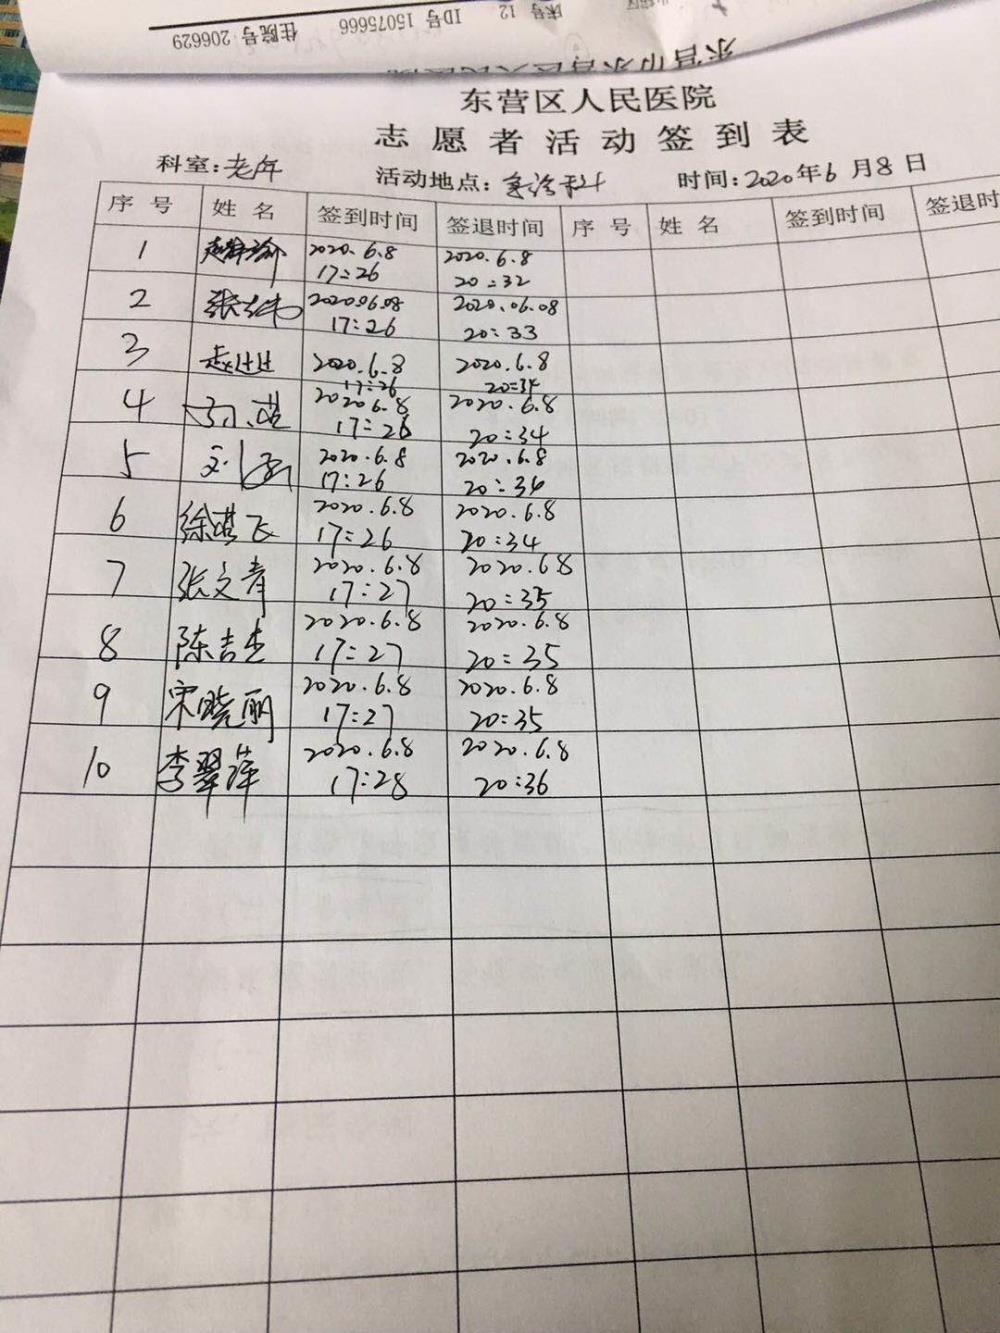 住院号 206629 ID号 15075666 床号 12
东营市东营区人民医院
东营区人民医院
志愿者活动签到表
科室:老年 活动地点:急诊科 时间:2020年6月8日
序号 姓名 签到时间 签退时间 序号 姓名 签到时间 签退时
1 2020.6.8 2020.6.8
17:26 20:32
2 2020.06.08 2020.06.08
17:26 20:33
3 2020.6.8 2020.6.8
17:26 20:34
4 2020.6.8 2020.6.8
17:26 20:34
5 2020.6.8 2020.6.8
17:26 20:34
6 徐琪飞 2020.6.8 2020.6.8
17:26 20:34
7 张文青 2020.6.8 2020.6.8
17:27 20:35
8 陈吉杰 2020.6.8 2020.6.8
17:27 20:35
9 宋晓丽 2020.6.8 2020.6.8
17:27 20:35
10 李翠萍 2020.6.8 2020.6.8
17:28 20:36